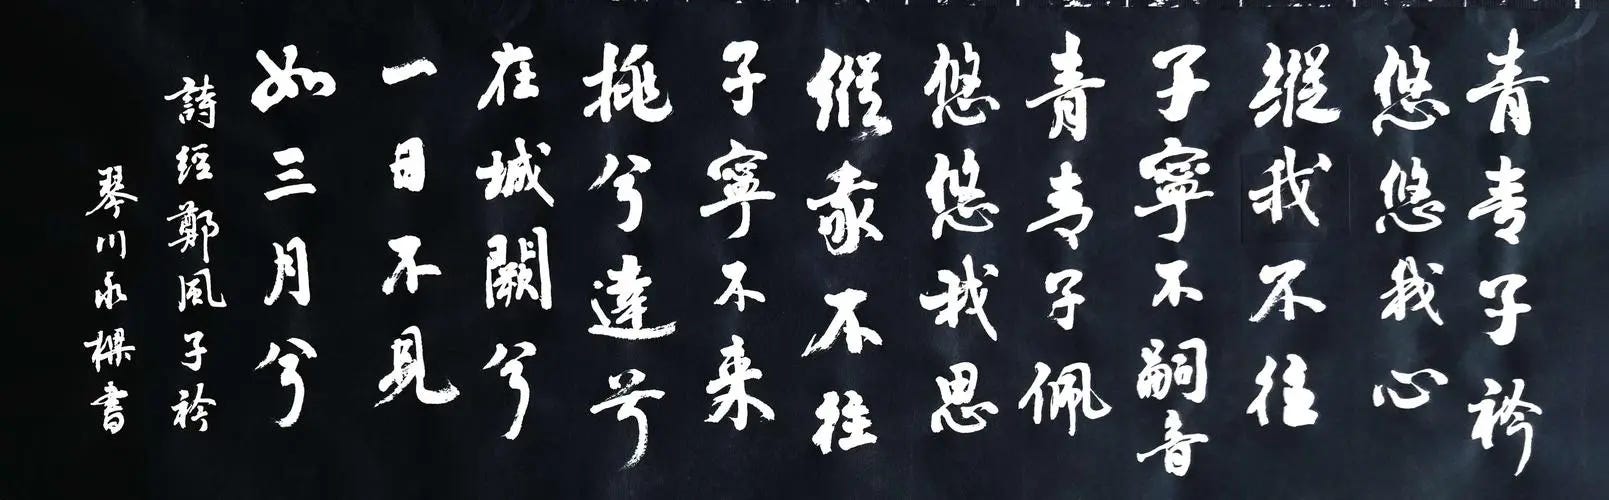 青青子衿
悠悠我心
縱我不往
子寧不嗣音
青青子佩
悠悠我思
縱我不往
子寧不来
挑兮達兮
在城闕兮
一日不見
如三月兮
詩經鄭風子衿
琴川永樑書